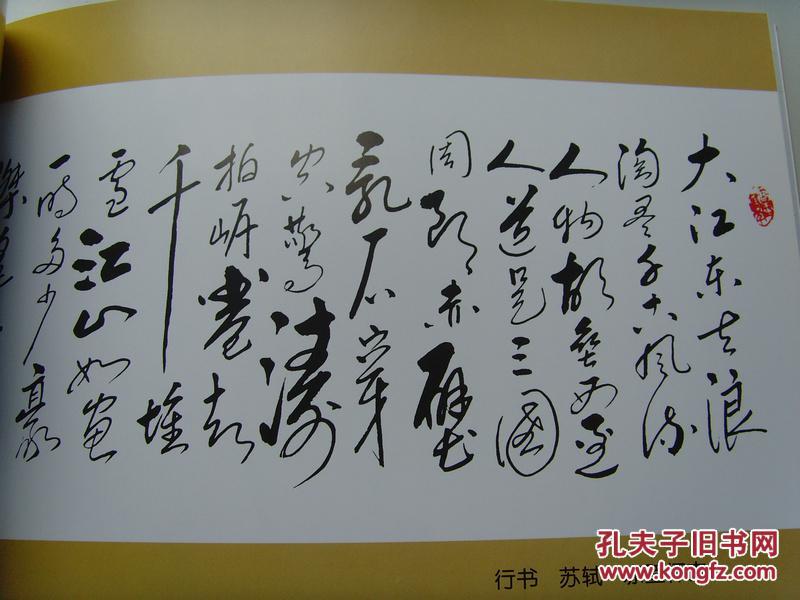 大江东去浪
淘尽千古风流
人物故垒西边
人道是三國
周郎赤壁
乱石穿
空驚濤
拍岸卷起
千堆
雪江山如畫
一时多少豪
行书 苏轼
孔夫子旧书网
www.kongfz.com